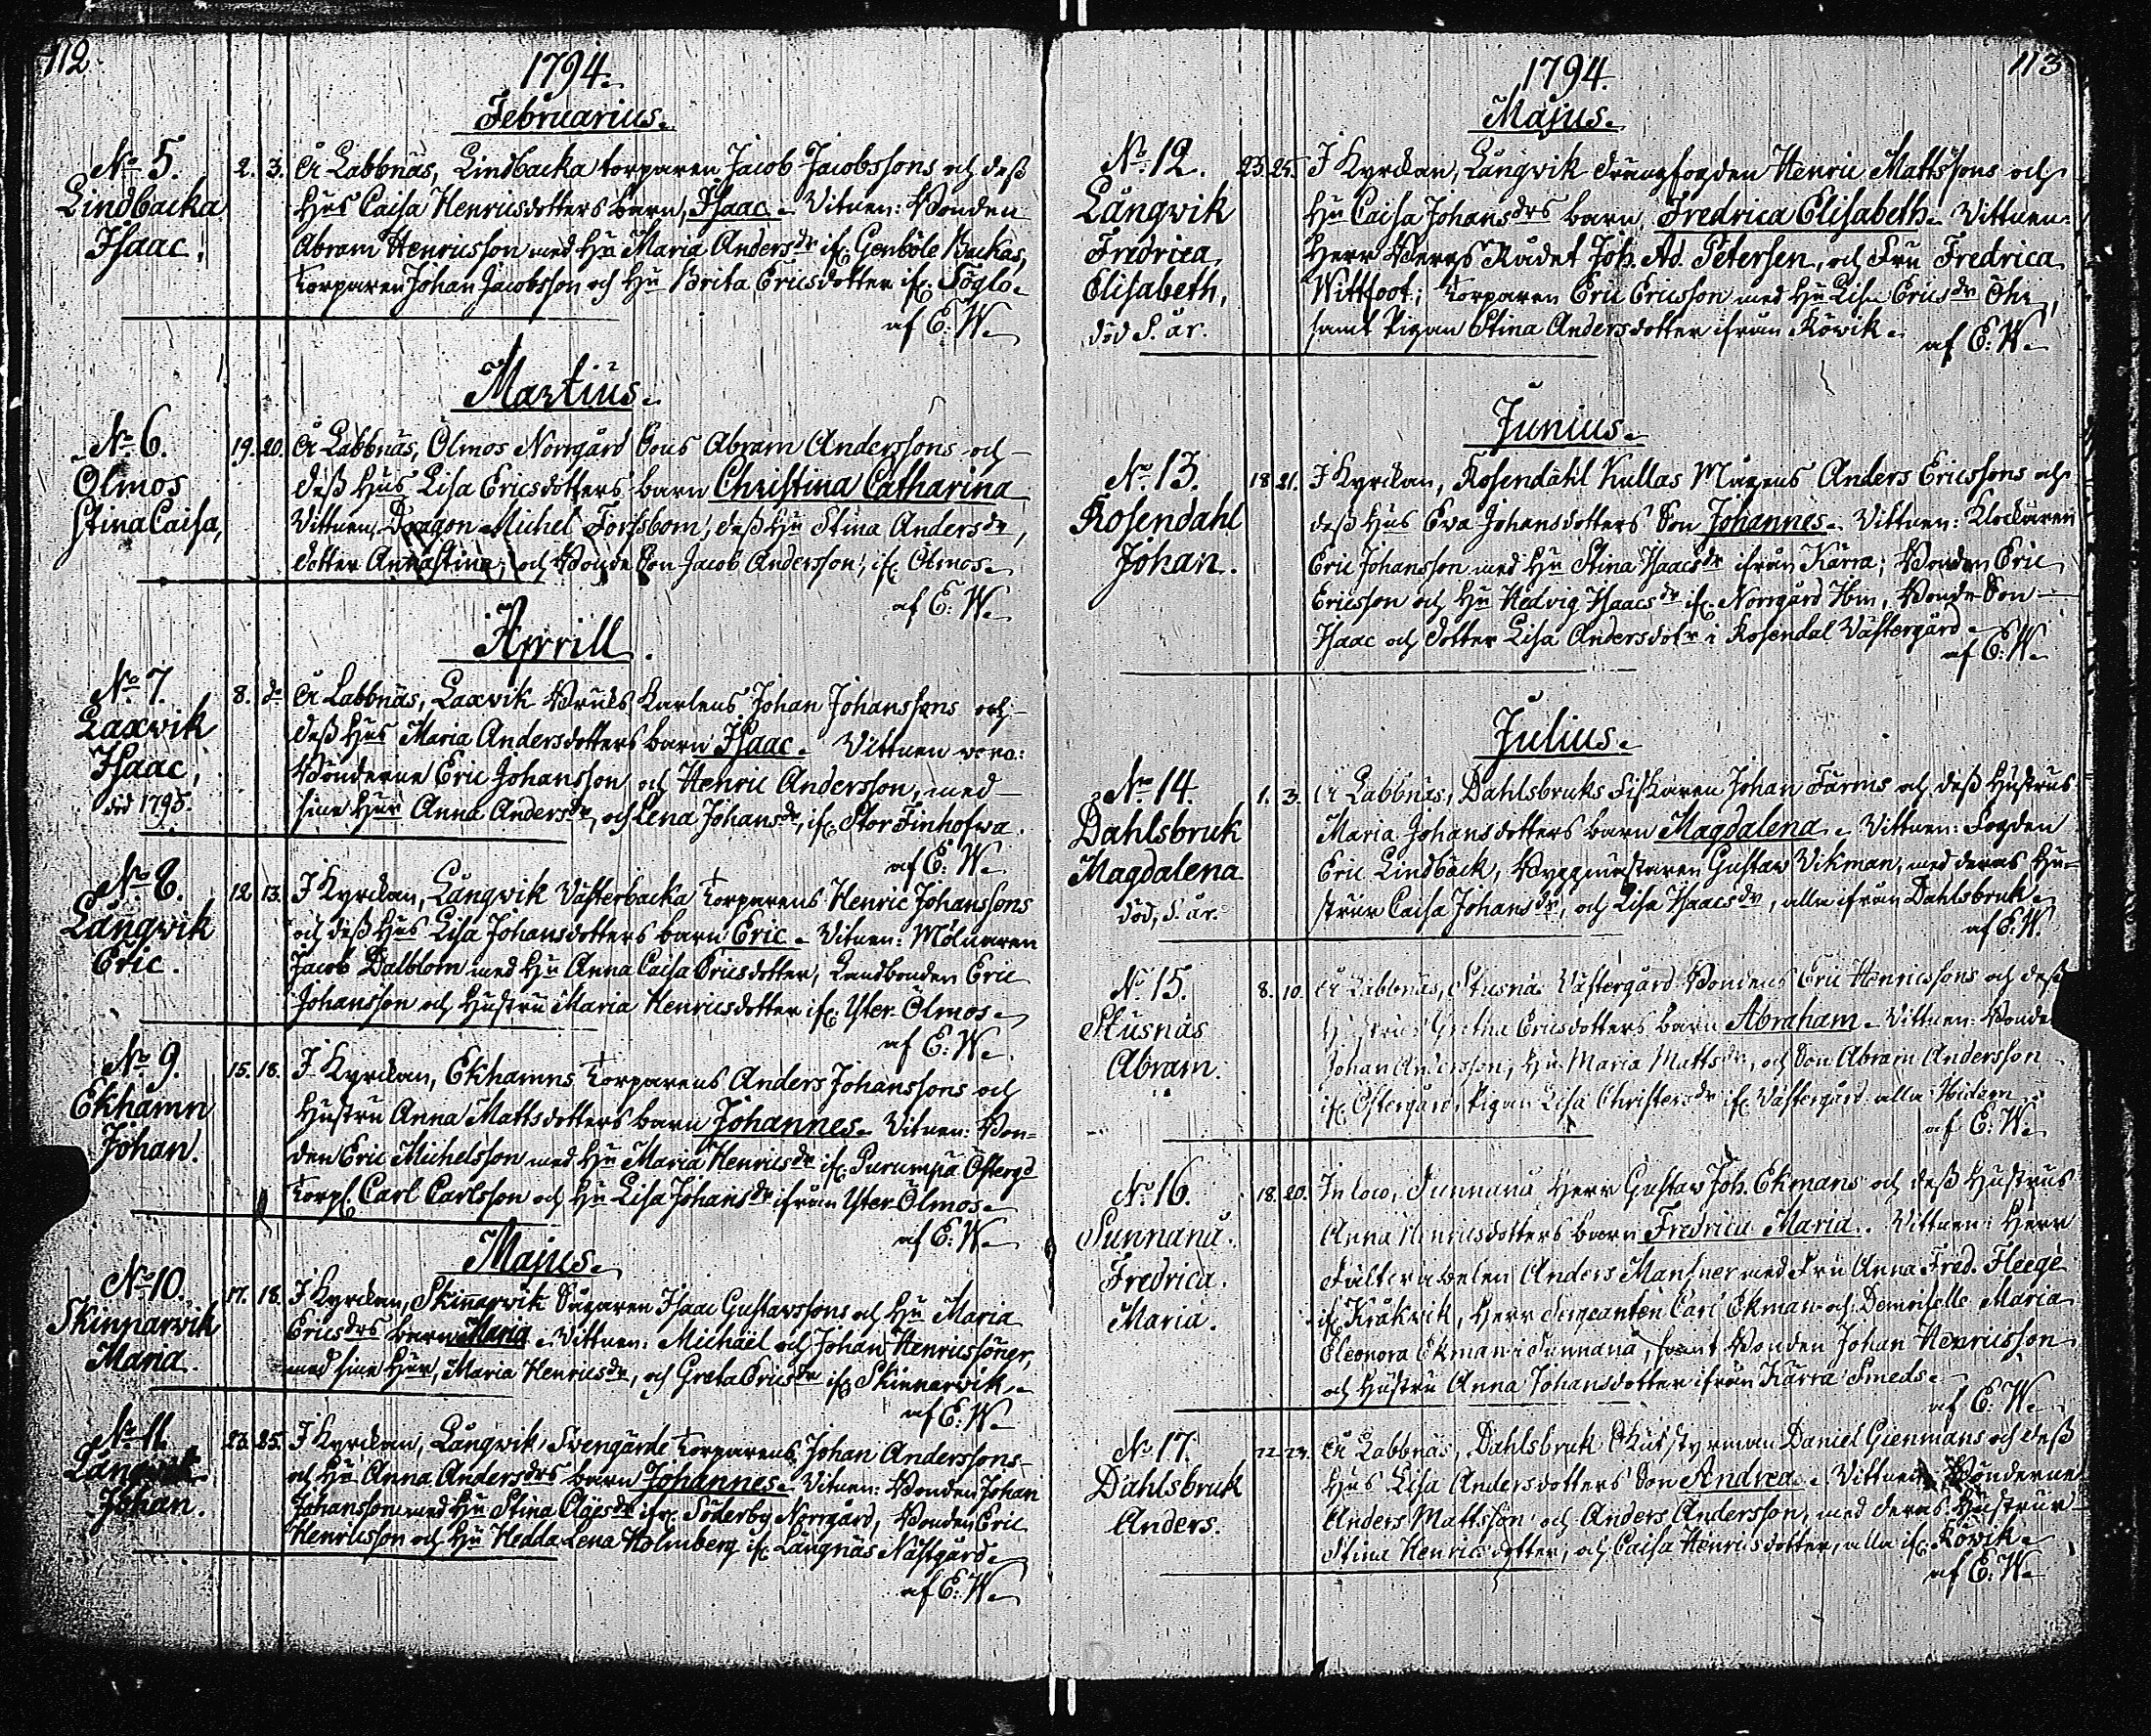 112
1794.
Februarius.
No 5.
Lindbacka
Isaac.
2. 3. Å Labbnäs, Lindbacka torparen Jacob Jacobssons och dess
Hus Caisa Henricsdotters barn, Isaac. Vitnen: Bonden
Abram Henricsson med Hu Maria Andersdr ifr. Genböle Backas,
Torparen Johan Jacobsson och Hu Brita Ericsdotter ifr. Söglo.
af E: W.
Martius.
No 6.
Ölmos
Stina Caisa,
19. 20. Å Labbnäs, Ölmos Norrgård Bons Abram Anderssons och
dess Hus Lisa Ericsdotters barn Christina Catharina
Vittnen, Dragon Michel Forssbom, dess Hu Stina Andersdr,
dotter Anna Stina, och Bonde Son Jacob Andersson, ifr. Ölmos.
af E: W.
Aprill.
No 7.
Laxvik
Isaac,
död 1795.
8. do Å Labbnäs, Laxvik Bruks Karlens Johan Johanssons och
dess Hus Maria Andersdotters barn Isaac. Vittnen voro:
Bönderne Eric Johansson och Henric Andersson, med
sine Hur Anna Andersdr, och Lena Johansdr, ifr. Stor Finhofwa.
af E: W.
No 8.
Långwik
Eric.
12. 13. I Kyrckan, Långwik Västerbacka Torparens Henric Johanssons
och dess Hus Lisa Johansdotters barn Eric. Vitnen: Mölnaren
Jacob Dalblom med Hu Anna Caisa Ericsdotter, Landbonden Eric
Johansson och Hustru Maria Henricsdotter ifr. Yter Ölmos.
af E: W.
No 9.
Ekhamn
Johan.
15. 18. I Kyrckan, Ekhamns Torparens Anders Johanssons och
Hustru Anna Mattsdotters barn Johannes. Vitnen: Bon-
den Eric Michelsson med Hu Maria Henricsdr ifr. Purumpä Östergd
Torp. Carl Carlsson och Hu Lisa Johansdr ifrån Yter Ölmos.
af E: W.
Majus.
No 10.
Skinnarvik
Maria.
17. 18. I Kyrckan, Skinnarvik Sågaren Isaac Gustavssons och Hu Maria
Ericsdrs barn Maria. Vittnen: Michäel och Johan Henricssöner,
med sine Hur, Maria Henricsdr, och Greta Ericsdr ifr. Skinnarwik.
af E: W.
No 11.
Långwik
Johan.
23. 25. I Kyrckan, Långwik, Svengärde Torparens Johan Anderssons
och Hu Anna Andersdrs barn Johannes. Vitnen: Bonden Johan
Johansson med Hu Stina Cläesdr ifr. Söderby Norrgård, Bonden Eric
Henricsson och Hu Hedda Lena Holmberg ifr. Långnäs Nästgård.
af E: W.
113
1794.
Majus.
No 12.
Långwik
Fredrica
Elisabeth,
död S. år.
23. 25. I Kyrckan, Långwik Drängfogden Henric Mattssons och
Hu Caisa Johansdrs barn, Fredrica Elisabeth. Vittnen:
Herr Bergs Rådet Joh. Ad. Petersen, och Fru Fredrica
Wittfoot; Torparen Eric Ericsson med Hu Lisa Ericsdr Öhr,
samt Pigan Stina Andersdotter ifrån Röwik.
af E: W.
Junius.
No 13.
Rosendahl
Johan.
18. 21. I Kyrckan, Rosendahl Kullas Mågens Anders Ericssons och
dess Hus Eva Johansdotters Son Johannes. Vittnen: Klockaren
Eric Johansson med Hu Stina Isaacsdr ifrån Kärra; Bonden Eric
Ericsson och Hu Hedvig Isaacsdr ifr. Norrgård Hbn, Bonde Son
Isaac och dotter Lisa Andersdotr i Rosendal Västergård.
af E: W.
Julius.
No 14.
Dahlsbruk
Magdalena
död, S. år.
1. 3. Å Labbnäs, Dahlsbruks Fiskaren Johan Färms och dess Hustrus
Maria Johansdotters barn Magdalena. Vittnen: Fogden
Eric Lindbäck, Byggmästaren Gustav Vikman, med deras Hu-
strur Caisa Johansdr, och Lisa Isaacsdr, alla ifrån Dahlsbruk.
af E: W.
No 15.
Stusnäs
Abram.
8. 10. Å Labbnäs, Stusnäs Västergård Bondens Eric Henricssons och dess
Hustrus Gretha Ericsdotters barn Abraham. Vittnen: Bonden
Johan Andersson, Hu Maria Mattsdr, och Son Abram Andersson
ifr. Östergård, Pigan Lisa Christersdr ifr. Västergård alla ibidem.
af E: W.
No 16.
Sunnanå
Fredrica
Maria.
18. 20. In loco, Sunnanå Herr Gustav Joh. Ekmans och dess Hustrus
Anna Henricsdotters barn Fredrica Maria. Vittnen: Herr
Fältwäbelen Anders Mansner med Fru Anna Fred. Fleege
ifr. Kråkvik, Herr Sergeanten Carl Ekman och Demoiselle Maria
Eleonora Ekman i Sunnanå, samt Bonden Johan Henricsson
och Hustru Anna Johansdotter ifrån Kärra Smeds.
af E: W.
No 17.
Dahlsbruk
Anders.
22. 23. Å Labbnäs, Dahlsbruk Skut Styrman Daniel Gienmans och dess
Hus Lisa Andersdotters Son Andrea. Vittnen Bönderne
Anders Mattsson och Anders Andersson, med deras Hustrur
Stina Henricsdotter, och Caisa Henricsdotter, alla ifr. Röwik.
af E: W.